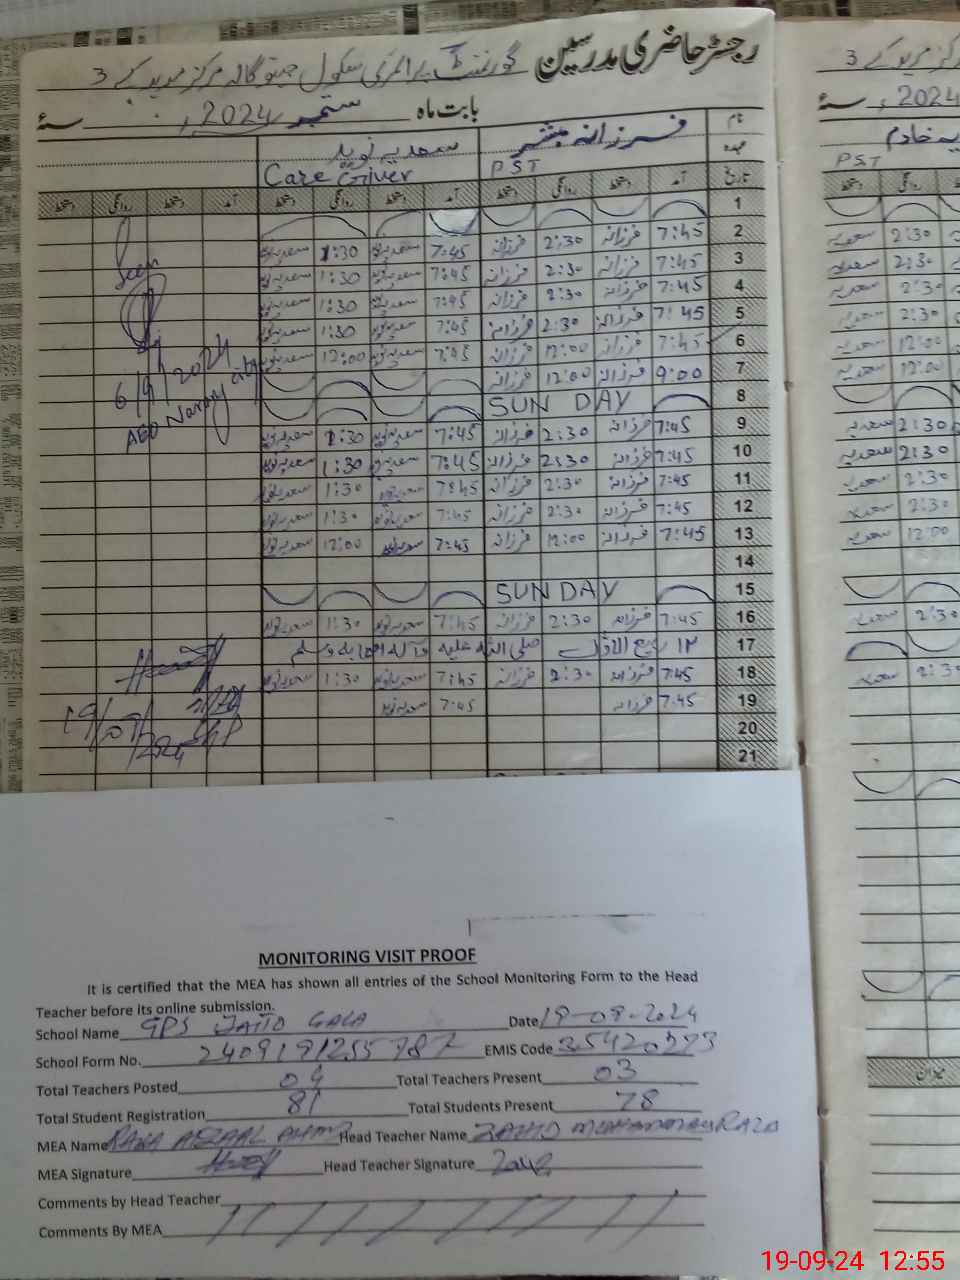 رجسٹر حاضری مدرسین گورنمنٹ پرائمری سکول جیتو گالا مرکز مریدکے 3
بابت ماہ ستمبر 2024ء سنہ
نام فرزانہ مبشر سعدیہ نوید
عہدہ PST Care Giver
تاریخ آمد دستخط روانگی دستخط آمد دستخط روانگی دستخط آمد دستخط روانگی دستخط
1
2 7:45 فرزانہ 2:30 فرزانہ 7:45 سعدیہ نوید 1:30 سعدیہ نوید
3 7:45 فرزانہ 2:30 فرزانہ 7:45 سعدیہ نوید 1:30 سعدیہ نوید
4 7:45 فرزانہ 2:30 فرزانہ 7:45 سعدیہ نوید 1:30 سعدیہ نوید
5 7:45 فرزانہ 2:30 فرزانہ 7:45 سعدیہ نوید 1:30 سعدیہ نوید
6 7:45 فرزانہ 12:00 فرزانہ 7:45 سعدیہ نوید 12:00 سعدیہ نوید
7 9:00 فرزانہ 12:00 فرزانہ
8 SUN DAY
9 7:45 فرزانہ 2:30 فرزانہ 7:45 سعدیہ نوید 1:30 سعدیہ نوید
10 7:45 فرزانہ 2:30 فرزانہ 7:45 سعدیہ نوید 1:30 سعدیہ نوید
11 7:45 فرزانہ 2:30 فرزانہ 7:45 سعدیہ نوید 1:30 سعدیہ نوید
12 7:45 فرزانہ 2:30 فرزانہ 7:45 سعدیہ نوید 1:30 سعدیہ نوید
13 7:45 فرزانہ 12:00 فرزانہ 7:45 سعدیہ نوید 12:00 سعدیہ نوید
14
15 SUNDAY
16 7:45 فرزانہ 2:30 فرزانہ 7:45 سعدیہ نوید 1:30 سعدیہ نوید
17 ۱۲ ربیع الاوّل صلی اللہ علیہ وآلہ اصحابہ وسلم
18 7:45 فرزانہ 2:30 فرزانہ 7:45 سعدیہ نوید 1:30 سعدیہ نوید
19 7:45 فرزانہ 7:45 سعدیہ نوید
20
21
Seen
6/9/2024
AEO Narang
19/09/2024
مرکز مریدکے 3
2024ء سنہ
یہ خادم
PST
دستخط روانگی
سعدیہ 2:30
سعدیہ 2:30
سعدیہ 2:30
سعدیہ 2:30
سعدیہ 12:00
سعدیہ 12:00
سعدیہ 2:30
سعدیہ 2:30
سعدیہ 2:30
سعدیہ 2:30
سعدیہ 12:00
سعدیہ 2:30
سعدیہ 2:30
میزان
MONITORING VISIT PROOF
It is certified that the MEA has shown all entries of the School Monitoring Form to the Head
Teacher before its online submission.
School Name GPS JATTO GALA Date 19-09-2024
School Form No. 2409191255787 EMIS Code 35420273
Total Teachers Posted 04 Total Teachers Present 03
Total Student Registration 81 Total Students Present 78
MEA Name RANA AFZAAL AHMD Head Teacher Name ZAHID MUHAMMAD RAZA
MEA Signature Head Teacher Signature
Comments by Head Teacher
Comments By MEA
19-09-24 12:55